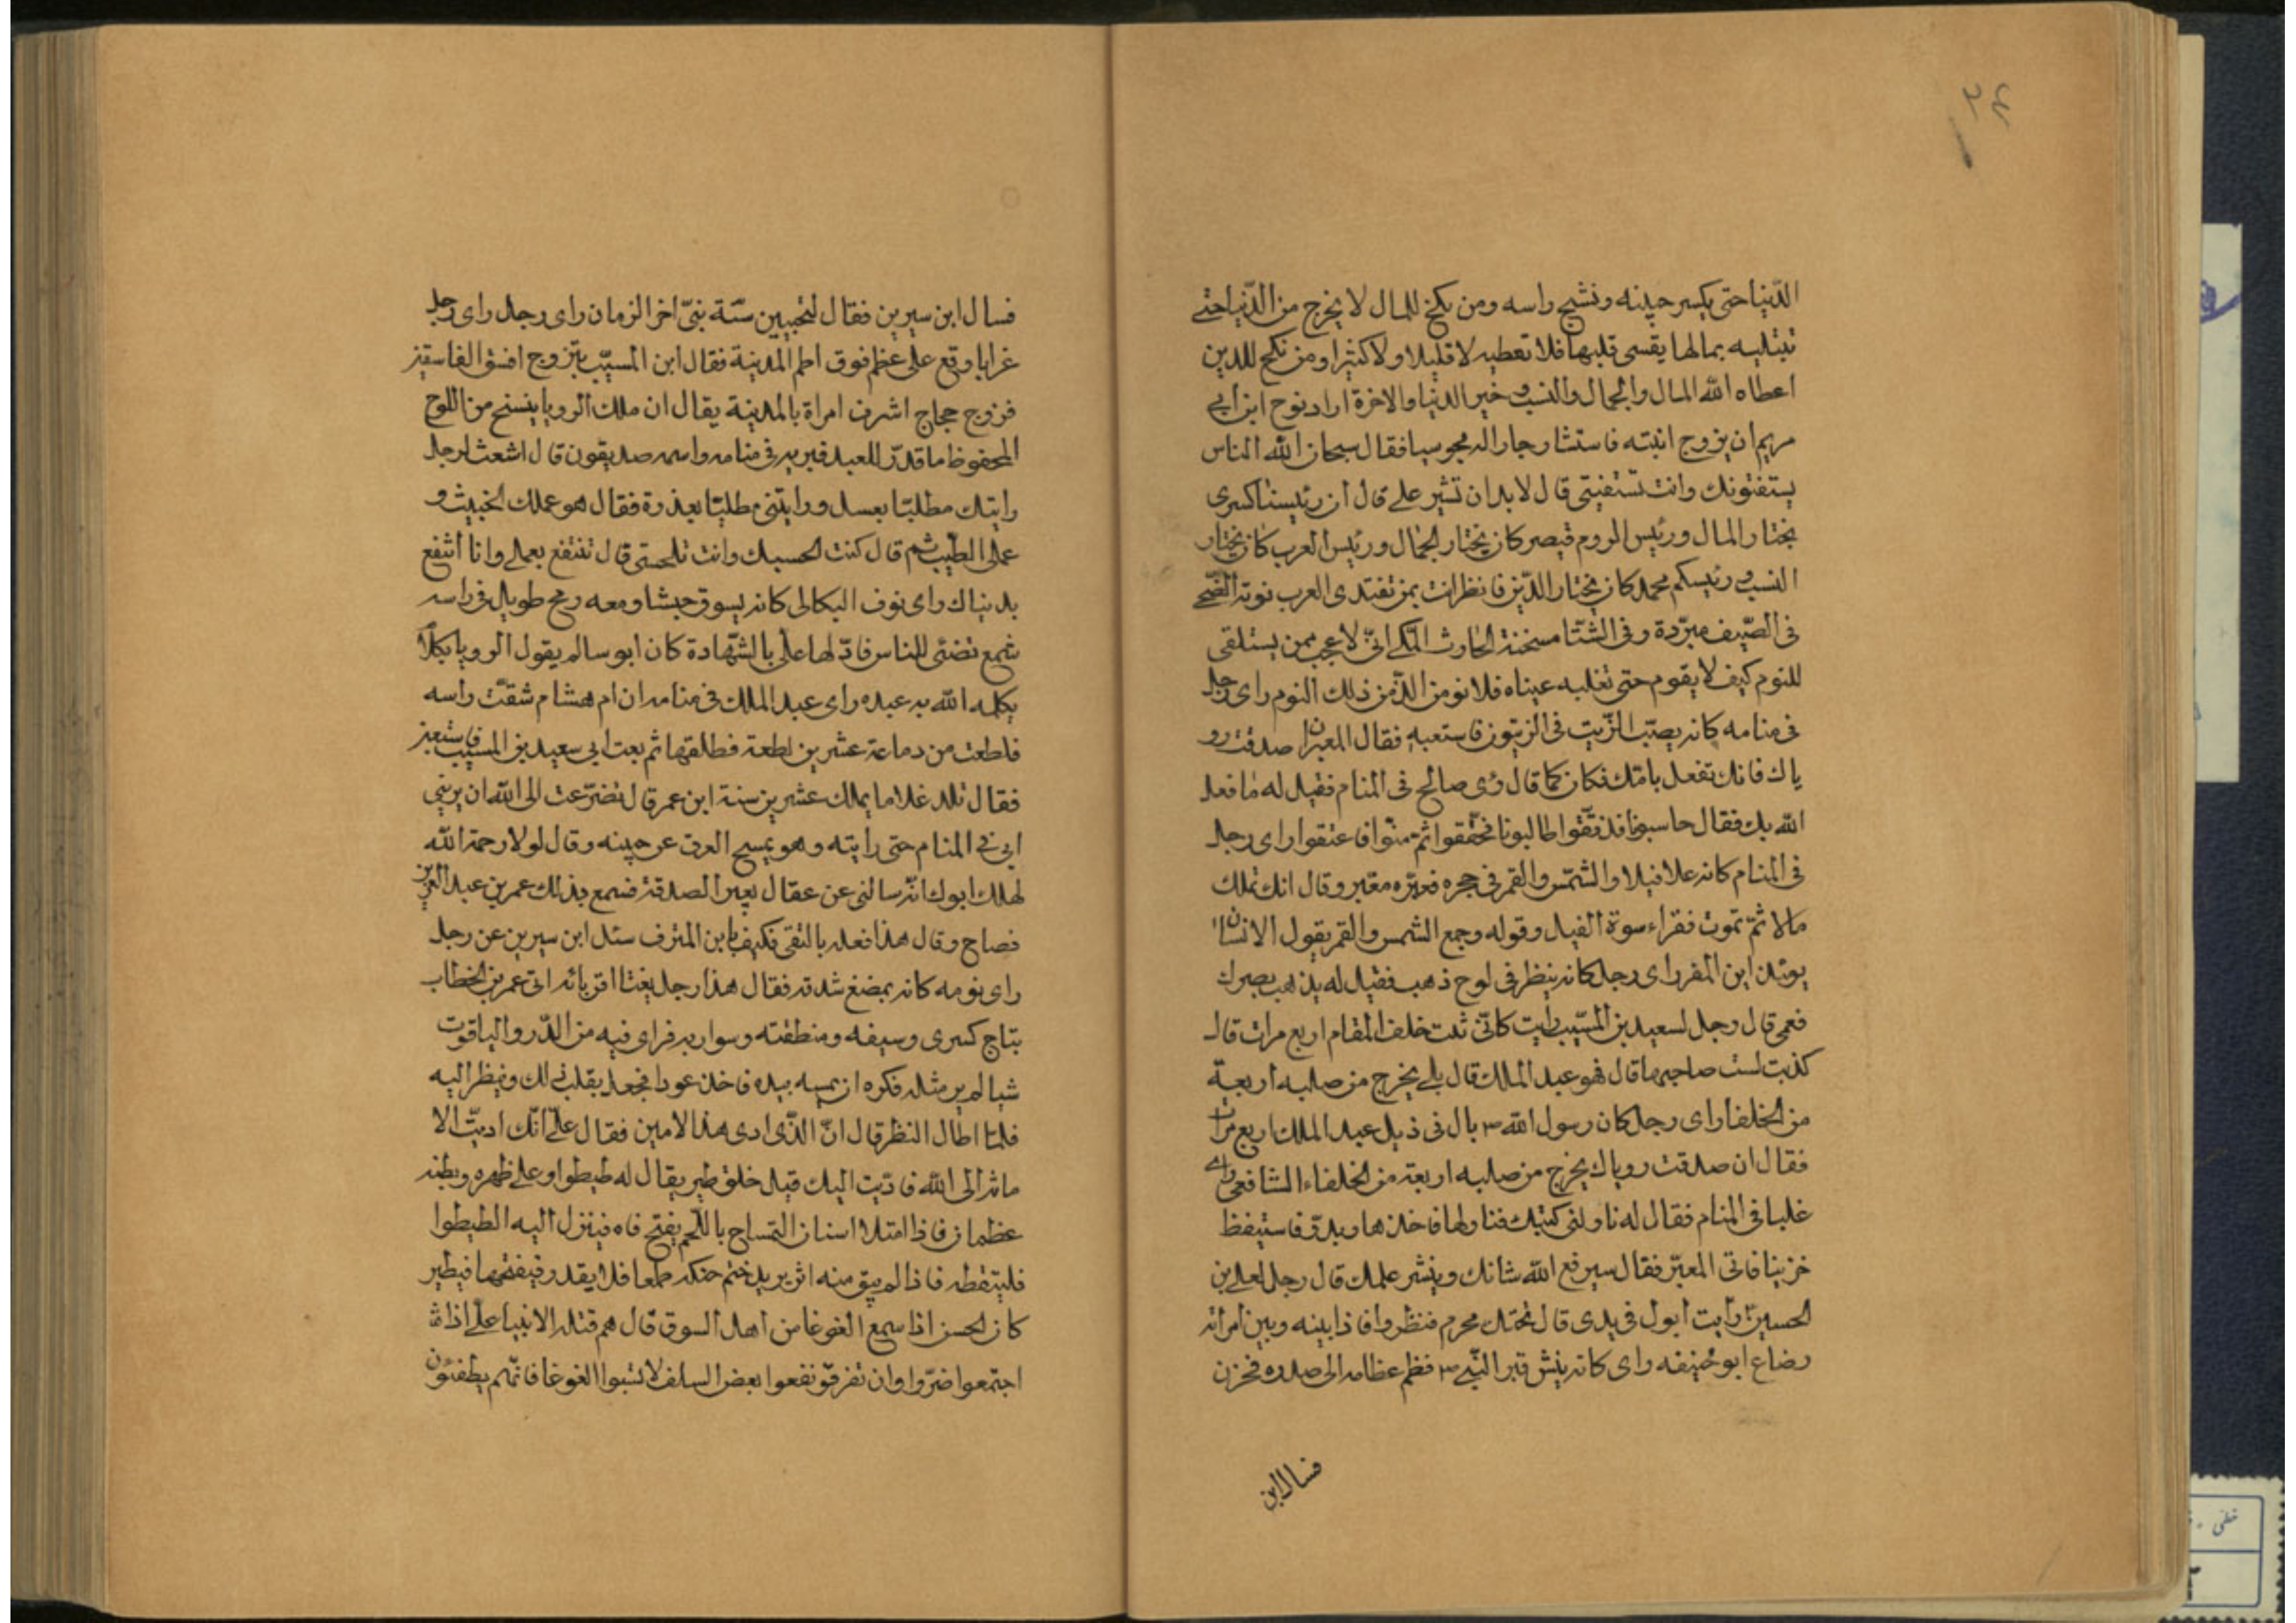 الدّنيا حتى يكسر جبينه ونشج راسه ومن نكح للمال لا يخرج من الدّنيا حتى
تبتليه بمالها يقسى قلبها فلا تعطيه لا قليلا ولا كثيرا ومن نكح للدين
اعطاه الله المال والجمال والنسب وخير الدنيا والاخرة اراد نوح ابن ابى
مريم ان يزوج ابنته فاستشار جارا له مجوسيا فقال سبحان الله الناس
يستفتونك وانت تستفتنى قال لابد ان تشير على قال ان رئيسنا كسرى
يختار المال ورئيس الروم قيصر كان يختار الجمال ورئيس العرب كان يختار
النسب ورئيسكم محمد كان يختار الدّين فانظر انت بمن تقتدى العرب نومة الضّحى
فى الصّيف مبرّدة وفى الشتا مسخنة الحارث المكى انّى لاعجب ممن يستلقى
للنوم كيف لا يقوم حتى تغلبه عيناه فلا نوم الذّ من ذلك النوم راى رجل
فى منامه كانه يصبّ الزّيت فى الزيتون فاستعبه فقال المعبر ان صدقت رو
ياك فانك تفعل بامّك فكان كما قال رؤى صالح فى المنام فقيل له ما فعل
الله بك فقال حاسبونا فدققوا طالبونا فحققوا ثم منّوا فاعتقوا راى رجل
فى المنام كانه علا فيلا والشمس والقمر فى حجره فعبّره معبر وقال انك تملك
مالا ثمّ تموت فقراء سورة الفيل وقوله وجمع الشمس والقمر يقول الانسان
يومئذ اين المفر راى رجل كانه ينظر فى لوح ذهب فقيل له يذهب بصرك
فعمى قال رجل لسعيد بن المسيّب رايت كانّى بلت خلف المقام اربع مرات قال
كذبت لست صاحبها قال فهو عبد الملك قال بلى يخرج من صلبه اربعة
من الخلفا راى رجل كان رسول الله ص بال فى ذيل عبد الملك اربع مرات
فقال ان صدقت روياك يخرج من صلبه اربعة من الخلفاء الشافعى راى
عليا فى المنام فقال له ناولنى كتبك فناولها فاخذها وبدّد فاستيقظ
حزينا فاتى المعبّر فقال سيرفع الله شانك وينشر علمك قال رجل لعلى بن
الحسين رايت ابول فى يدى قال تحتك محرم فنظروا فاذا بينه وبين امراته
رضاع ابو حنيفه راى كانه ينبش قبر النّبى ص فضم عظامه الى صدره فحزن
فسال ابن
فسال ابن سيرين فقال لتحيين سنّة نبىّ اخر الزمان راى رجل راى رجل
غرابا وقع على عظم فوق اطم المدينة فقال ابن المسيّب يتزوج افسق الفاسقين
فزوج حجاج اشرف امراة بالمدينة يقال ان ملك الرويا ينسخ من اللوح
المحفوظ ما قدّر للعبد فيريه فى منامه واسمه صديقون قال اشعث لرجل
رايتك مطليّا بعسل ورايتنى مطليّا بعذرة فقال هو عملك الخبيث و
عملى الطيّب ثم قال كنت الحسك وانت تلحسنى قال تنتفع بعملى وانا انتفع
بدنياك راى نوف البكالى كانه يسوق جيشا ومعه رمح طويل فى راسه
شمع تضئى للناس فاوّلها على بالشّهادة كان ابو سالم يقول الرويا كلام
يكلمه الله به عبده راى عبد الملك فى منامه ان ام هشام شقّت راسه
فلطعت من دماغه عشرين لطعة فطلقها ثم بعث الى سعيد بن المسيب فاستعبر
فقال تلد غلاما يملك عشرين سنة ابن عمر قال تضرّعت الى الله ان يرينى
ابى فى المنام حتى رايته وهو يمسح العرق عن جبينه وقال لولا رحمة الله
لهلك ابوك انّه سالنى عن عقال بعير الصدقة فسمع بذلك عمر بن عبد العزيز
فصاح وقال هذا فعله بالتقى فكيف بابن المترف سئل ابن سيرين عن رجل
راى نومه كانه يمضغ شدقه فقال هذا رجل يغتاب اقربائه اتى عمر بن الخطاب
بتاج كسرى وسيفه ومنطقته وسواريه فراى فيه من الدّر والياقوت
شيا لم ير مثله فكره ان يمسه بيده فاخذ عودا فجعل يقلب ذلك وينظر اليه
فلمّا اطال النظر قال انّ الذّى ادى هذا لامين فقال على انّك ادّيت الا
مانة الى الله فادّيت اليك قيل خلق طير يقال له طيطوا وعلى ظهره وبطنه
عظمان فاذا امتلا اسنان التمساح باللّحم يفتح فاه فينزل اليه الطيطوا
فليتقطه فاذا لم يبق منه اثر يريد ختم حنكه طمعا فلا يقدر فيفتحها فيطير
كان الحسن اذا سمع الغوغا من اهل السوق قال هم قتلة الانبيا على اذا
اجتمعوا ضرّوا وان تفرقوا نفعوا بعض السلف لا تسبوا الغوغا فانّهم يطفئون